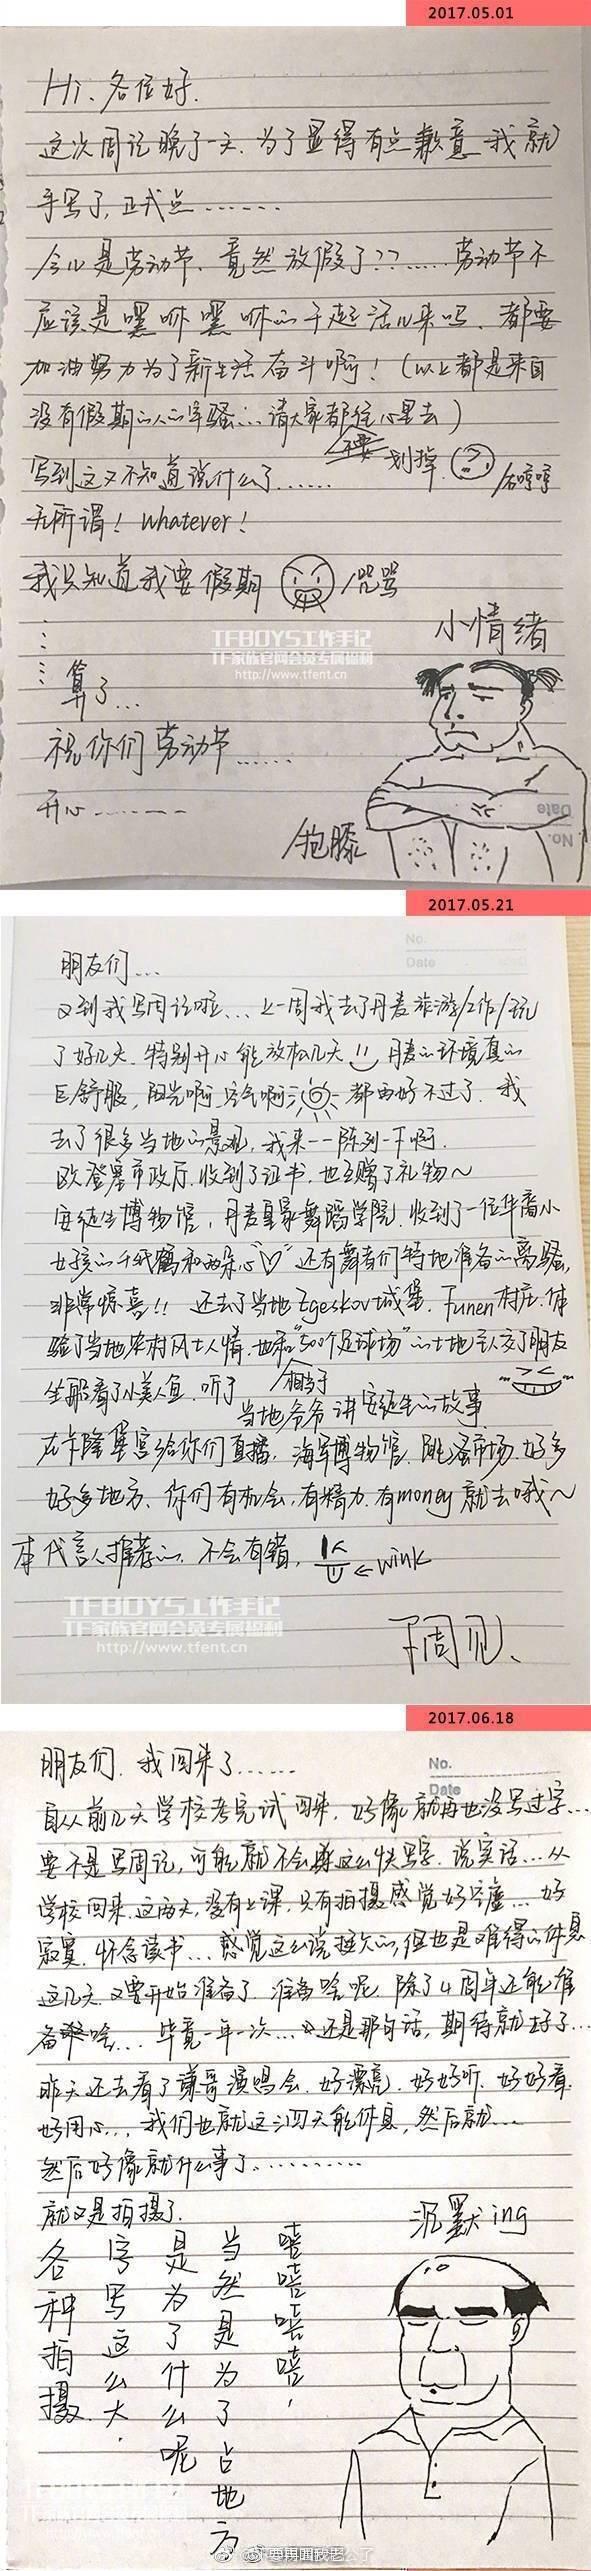 2017.05.01
Hi、各位好.
这次周记晚了一天.为了显得有点歉意 我就
手写了,正式点……
今儿是劳动节、竟然放假了??……劳动节不
应该是嘿咻嘿咻的干起活儿来吗、都要
加油努力为了新生活奋斗啊!(以上都是来自
没有假期的人的牢骚…请大家都往心里去)
不要 划掉
写到这又不知道说什么了…… /石哼哼
无所谓! whatever!
我只知道我要假期 /咒骂
小情绪
TFBOYS工作手记
TF家族官网会员专属福利
http://www.tfent.cn
算了…
祝你们劳动节……
开心……
/抱膝
No.
Date
2017.05.21
No.
Date
朋友们…
又到我写周记啦…上一周我去了丹麦旅游/工作/玩
了好几天.特别开心能放松几天 丹麦的环境真的
巨舒服,阳光啊 空气啊 都再好不过了.我
去了很多当地的景观,我来一一陈列一下啊.
欧登塞市政厅.收到了证书.也互赠了礼物~
安徒生博物馆,丹麦皇家舞蹈学院.收到了一位华裔小
女孩的千纸鹤和两朵心"♡"还有舞者们特地准备的离骚,
非常惊喜!! 还去了当地Egeskov城堡.Funen村庄.体
验了当地农村风土人情.也和"500个足球场"的土地主人交了朋友
相当于
坐船看了小美人鱼.听了当地爷爷讲安徒生的故事
在卡隆堡宫给你们直播,海军博物馆、跳蚤市场.好多
好多地方、你们有机会,有精力.有money就去哦~
本代言人推荐的、不会有错, ←wink
TFBOYS工作手记
TF家族官网会员专属福利
http://www.tfent.cn
下周见、
2017.06.18
No.
Date
朋友们、我回来了……
自从前几天学校考完试回来,好像就再也没写过字…
要不是写周记,可能就不会这么快写字.说实话…从
学校回来.这两天,没有上课,只有拍摄感觉好空虚…好
寂寞.怀念读书…感觉这么说挺欠的,但也是难得的休息
这几天.又要开始准备了.准备啥呢,除了4周年还能准
备啥…毕竟一年一次…还是那句话,期待就好了…
昨天还去看了谦哥演唱会、好漂亮.好好听.好好看.
好用心…我们也就这三四天能休息,然后就…
然后好像就什么事了………
就又是拍摄了.
各种拍摄.
字写这么大.
是为了什么呢
当然是为了占地方
嘻嘻嘻嘻,
沉默ing
TFBOYS工作手记
TF家族官网会员专属福利
http://www.tfent.cn